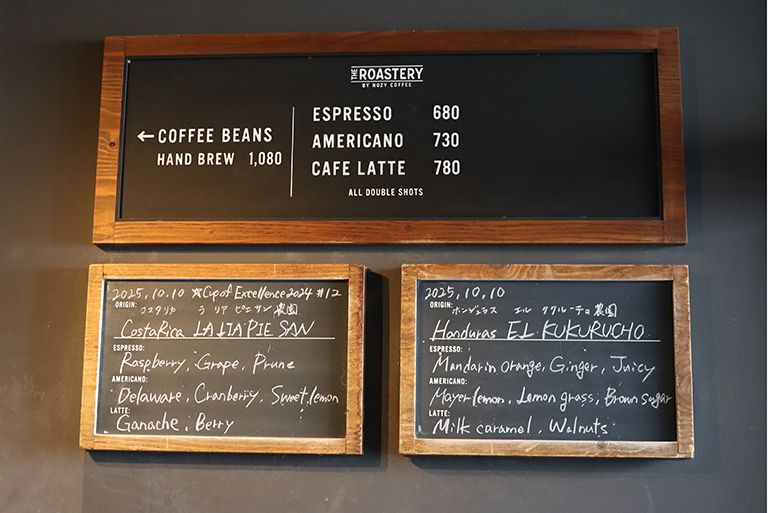 THE ROASTERY
BY NOZY COFFEE
←COFFEE BEANS
HAND BREW 1,080
ESPRESSO 680
AMERICANO 730
CAFE LATTE 780
ALL DOUBLE SHOTS
2025.10.10 ☆Cup of Excellence 2024 #12
ORIGIN:
コスタリカ ラ リア ピエ サン 農園
Costa Rica LA LIA PIE SAN
ESPRESSO:
Raspberry, Grape, Prune
AMERICANO:
Delaware, Cranberry, Sweet lemon
LATTE:
Ganache, Berry
2025.10.10
ORIGIN:
ホンジュラス エル ククルーチョ 農園
Honduras EL KUKURUCHO
ESPRESSO:
Mandarin orange, Ginger, Juicy
AMERICANO:
Mayer lemon, Lemon grass, Brown sugar
LATTE:
Milk caramel, Walnuts